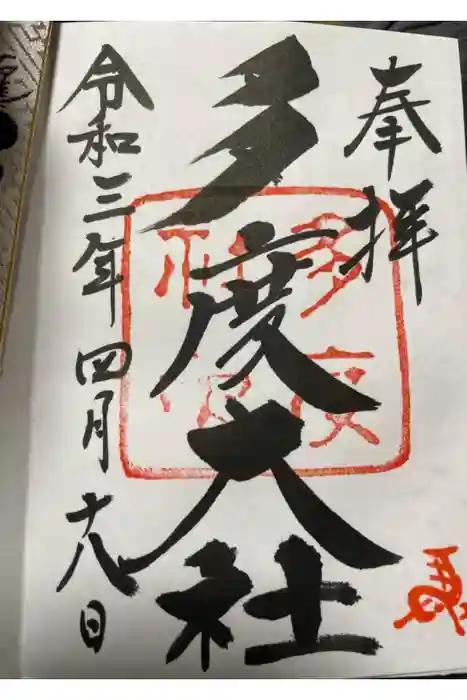 奉拝
多度大社
令和三年四月十八日
多度